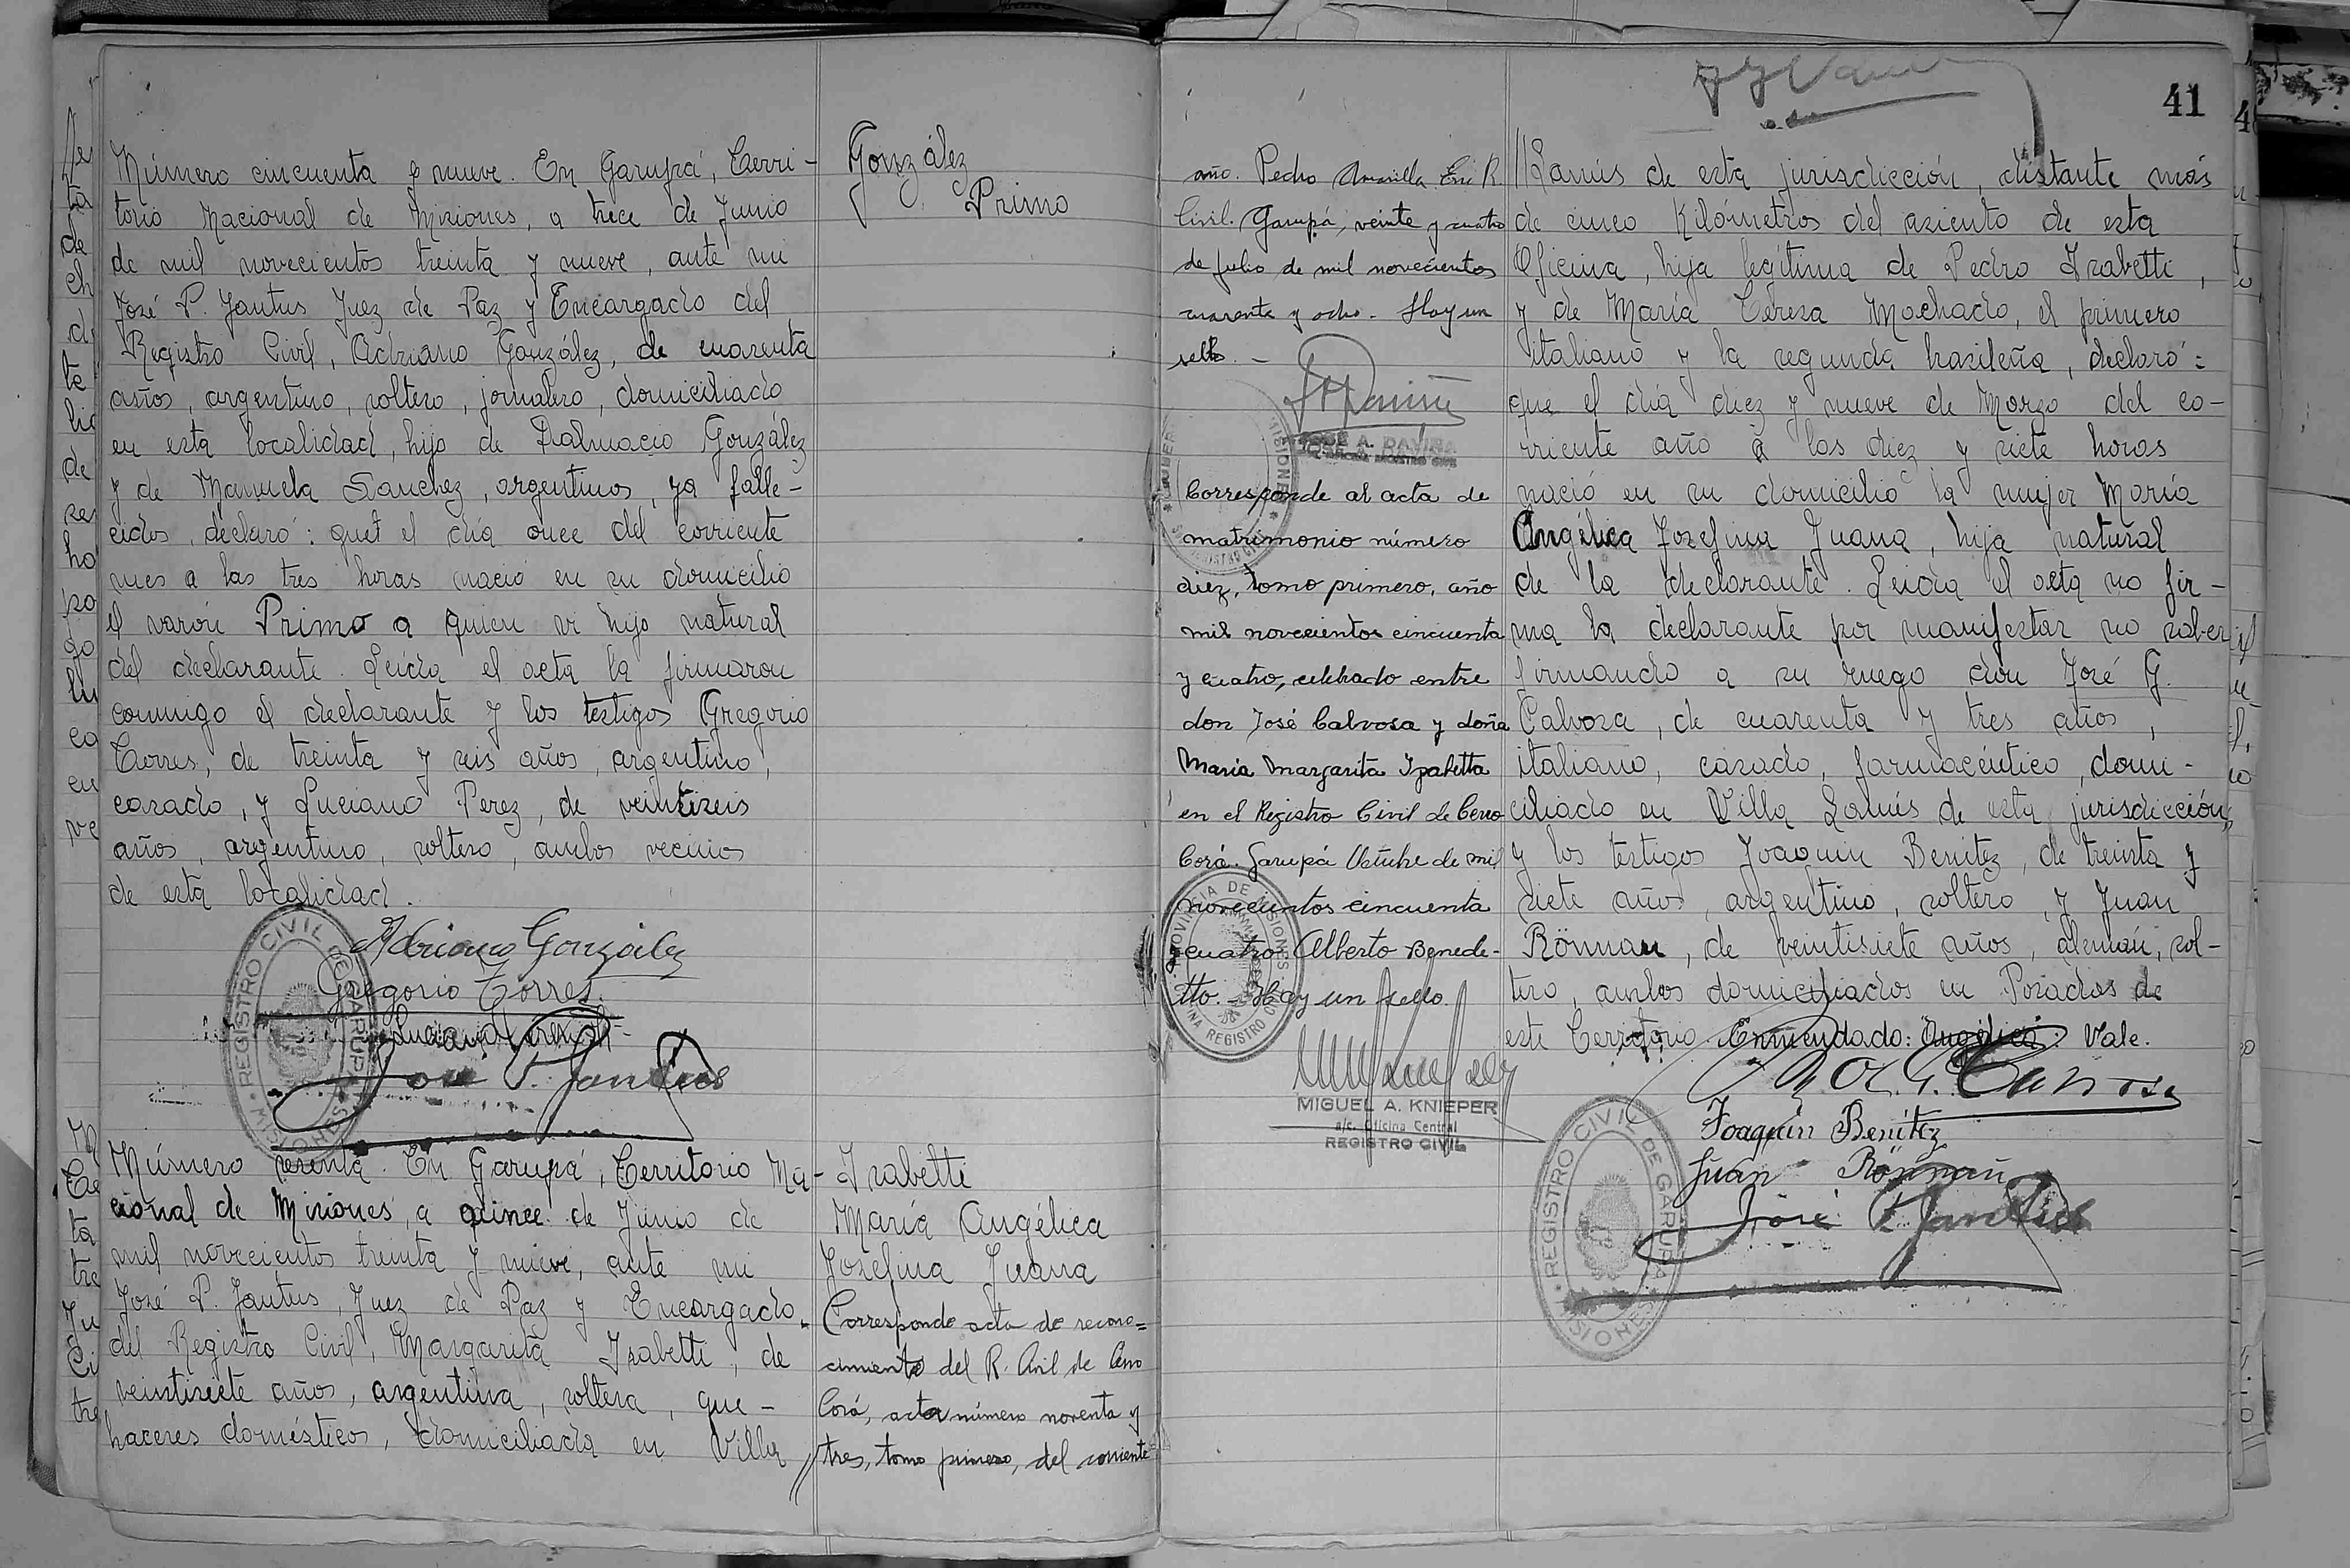 Número cincuenta y nueve. En Garupá, Terri-
torio Nacional de Misiones, a trece de Junio
de mil novecientos treinta y nueve, ante mi
José P. Jantus Juez de Paz y Encargado del
Registro Civil, Adriano González, de cuarenta
años, argentino, soltero, jornalero, domiciliado
en esta localidad, hijo de Dalmacio González
y de Manuela Sanchez, argentinos, ya falle-
cidos, declaró: que el día once del corriente
mes a las tres horas nació en su domicilio
el varón Primo a quien vi hijo natural
del declarante. Leída el acta la firmaron
conmigo el declarante y los testigos Gregorio
Torres, de treinta y seis años, argentino,
casado, y Luciano Perez, de veintiseis
años, argentino, soltero, ambos vecinos
de esta localidad.
Adriano González
Gregorio Torres
José P. Jantus
REGISTRO CIVIL DE GARUPA
MISIONES
González
Primo
Número sesenta. En Garupá, Territorio Na-
cional de Misiones, a quince de Junio de
mil novecientos treinta y nueve, ante mi
José P. Jantus, Juez de Paz y Encargado
del Registro Civil, Margarita Isabetti, de
veintisiete años, argentina, soltera, que-
haceres domésticos, domiciliada en Villa //
Isabetti
María Angélica
Josefina Juana
Corresponde acta de recono=
cimiento del R. Civil de Cerro
Corá, acta número noventa y
tres, tomo primero, del corriente
año. Pedro Amarilla Enc R.
Civil. Garupá, veinte y cuatro
de julio de mil novecientos
cuarenta y ocho. Hay un
sello. -
JOSÉ A. DAVIÑA
Corresponde al acta de
matrimonio número
diez, tomo primero, año
mil novecientos cincuenta
y cuatro, celebrado entre
don José Calvosa y doña
Maria Margarita Izabetta
en el Registro Civil de Cerro
Corá. Garupá Octubre de mil
novecientos cincuenta
y cuatro Alberto Benede-
tto. - Hay un sello.
PROVINCIA DE MISIONES
MIGUEL A. KNIEPER
a/c. Oficina Central
REGISTRO CIVIL
41
//Lanús de esta jurisdicción, distante más
de cinco Kilómetros del asiento de esta
Oficina, hija legítima de Pedro Isabetti,
y de María Teresa Machado, el primero
italiano y la segunda brasileña, declaró:
que el día diez y nueve de Marzo del co-
rriente año a las diez y siete horas
nació en su domicilio la mujer María
Angélica Josefina Juana, hija natural
de la declarante. Leída el acta no fir-
ma la declarante por manifestar no saber
firmando a su ruego don José G.
Calvosa, de cuarenta y tres años,
italiano, casado, farmacéutico, domi-
ciliado en Villa Lanús de esta jurisdicción,
y los testigos Joaquin Benitez, de treinta y
siete años, argentino, soltero, y Juan
Rönnau, de veintisiete años, alemán, sol-
tero, ambos domiciliados en Posadas de
este Territorio. Enmendado: Angélica. Vale.
Joaquín Benítez
Juan Rönnau
José P. Jantus
REGISTRO CIVIL DE GARUPA
MISIONES